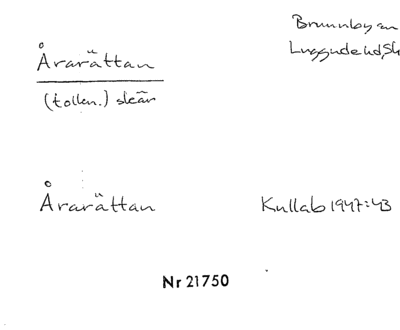 Brunnby sn
Årarättan
Luggude hd, Sk
(tolkn.) skär
Årarättan
Kullab 1947:43
Nr 21750